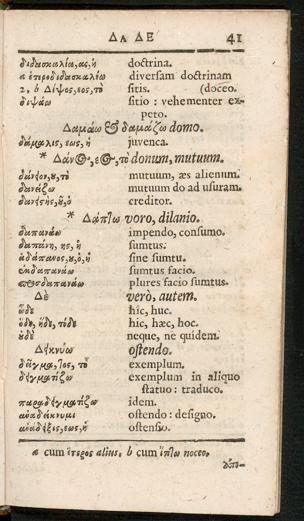 ΔΑ ΔΕ 41
διδασκαλία, ας, ἡ doctrina.
a ἑτεροδιδασκαλέω diversam doctrinam
2, b Δίψος, εος, τὸ sitis. (doceo.
διψάω sitio : vehementer ex-
peto.
Δαμάω & δαμάζω domo.
δάμαλις, εως, ἡ juvenca.
* Δάνος, εος, τὸ donum, mutuum.
δάνειον, ου, τὸ mutuum, æs alienum.
δανείζω mutuum do ad usuram.
δανειστὴς, οῦ, ὁ creditor.
* Δάπτω voro, dilanio.
δαπανάω impendo, consumo.
δαπάνη, ης, ἡ sumtus.
ἀδάπανος, ου, ὁ, ἡ sine sumtu.
ἐκδαπανάω sumtus facio.
προσδαπανάω plures facio sumtus.
Δὲ verò, autem.
ὧδε hîc, huc.
ὅδε, ἥδε, τόδε hic, hæc, hoc.
οὐδὲ neque, ne quidem.
Δεικνύω ostendo.
δεῖγμα, τος, τὸ exemplum.
δειγματίζω exemplum in aliquo
statuo : traduco.
παραδειγματίζω idem.
ἀναδείκνυμι ostendo : designo.
ἀνάδειξις, εως, ἡ ostensio.
a cum ἕτερος alius, b cum ἴπτω noceo.
ἀπο-